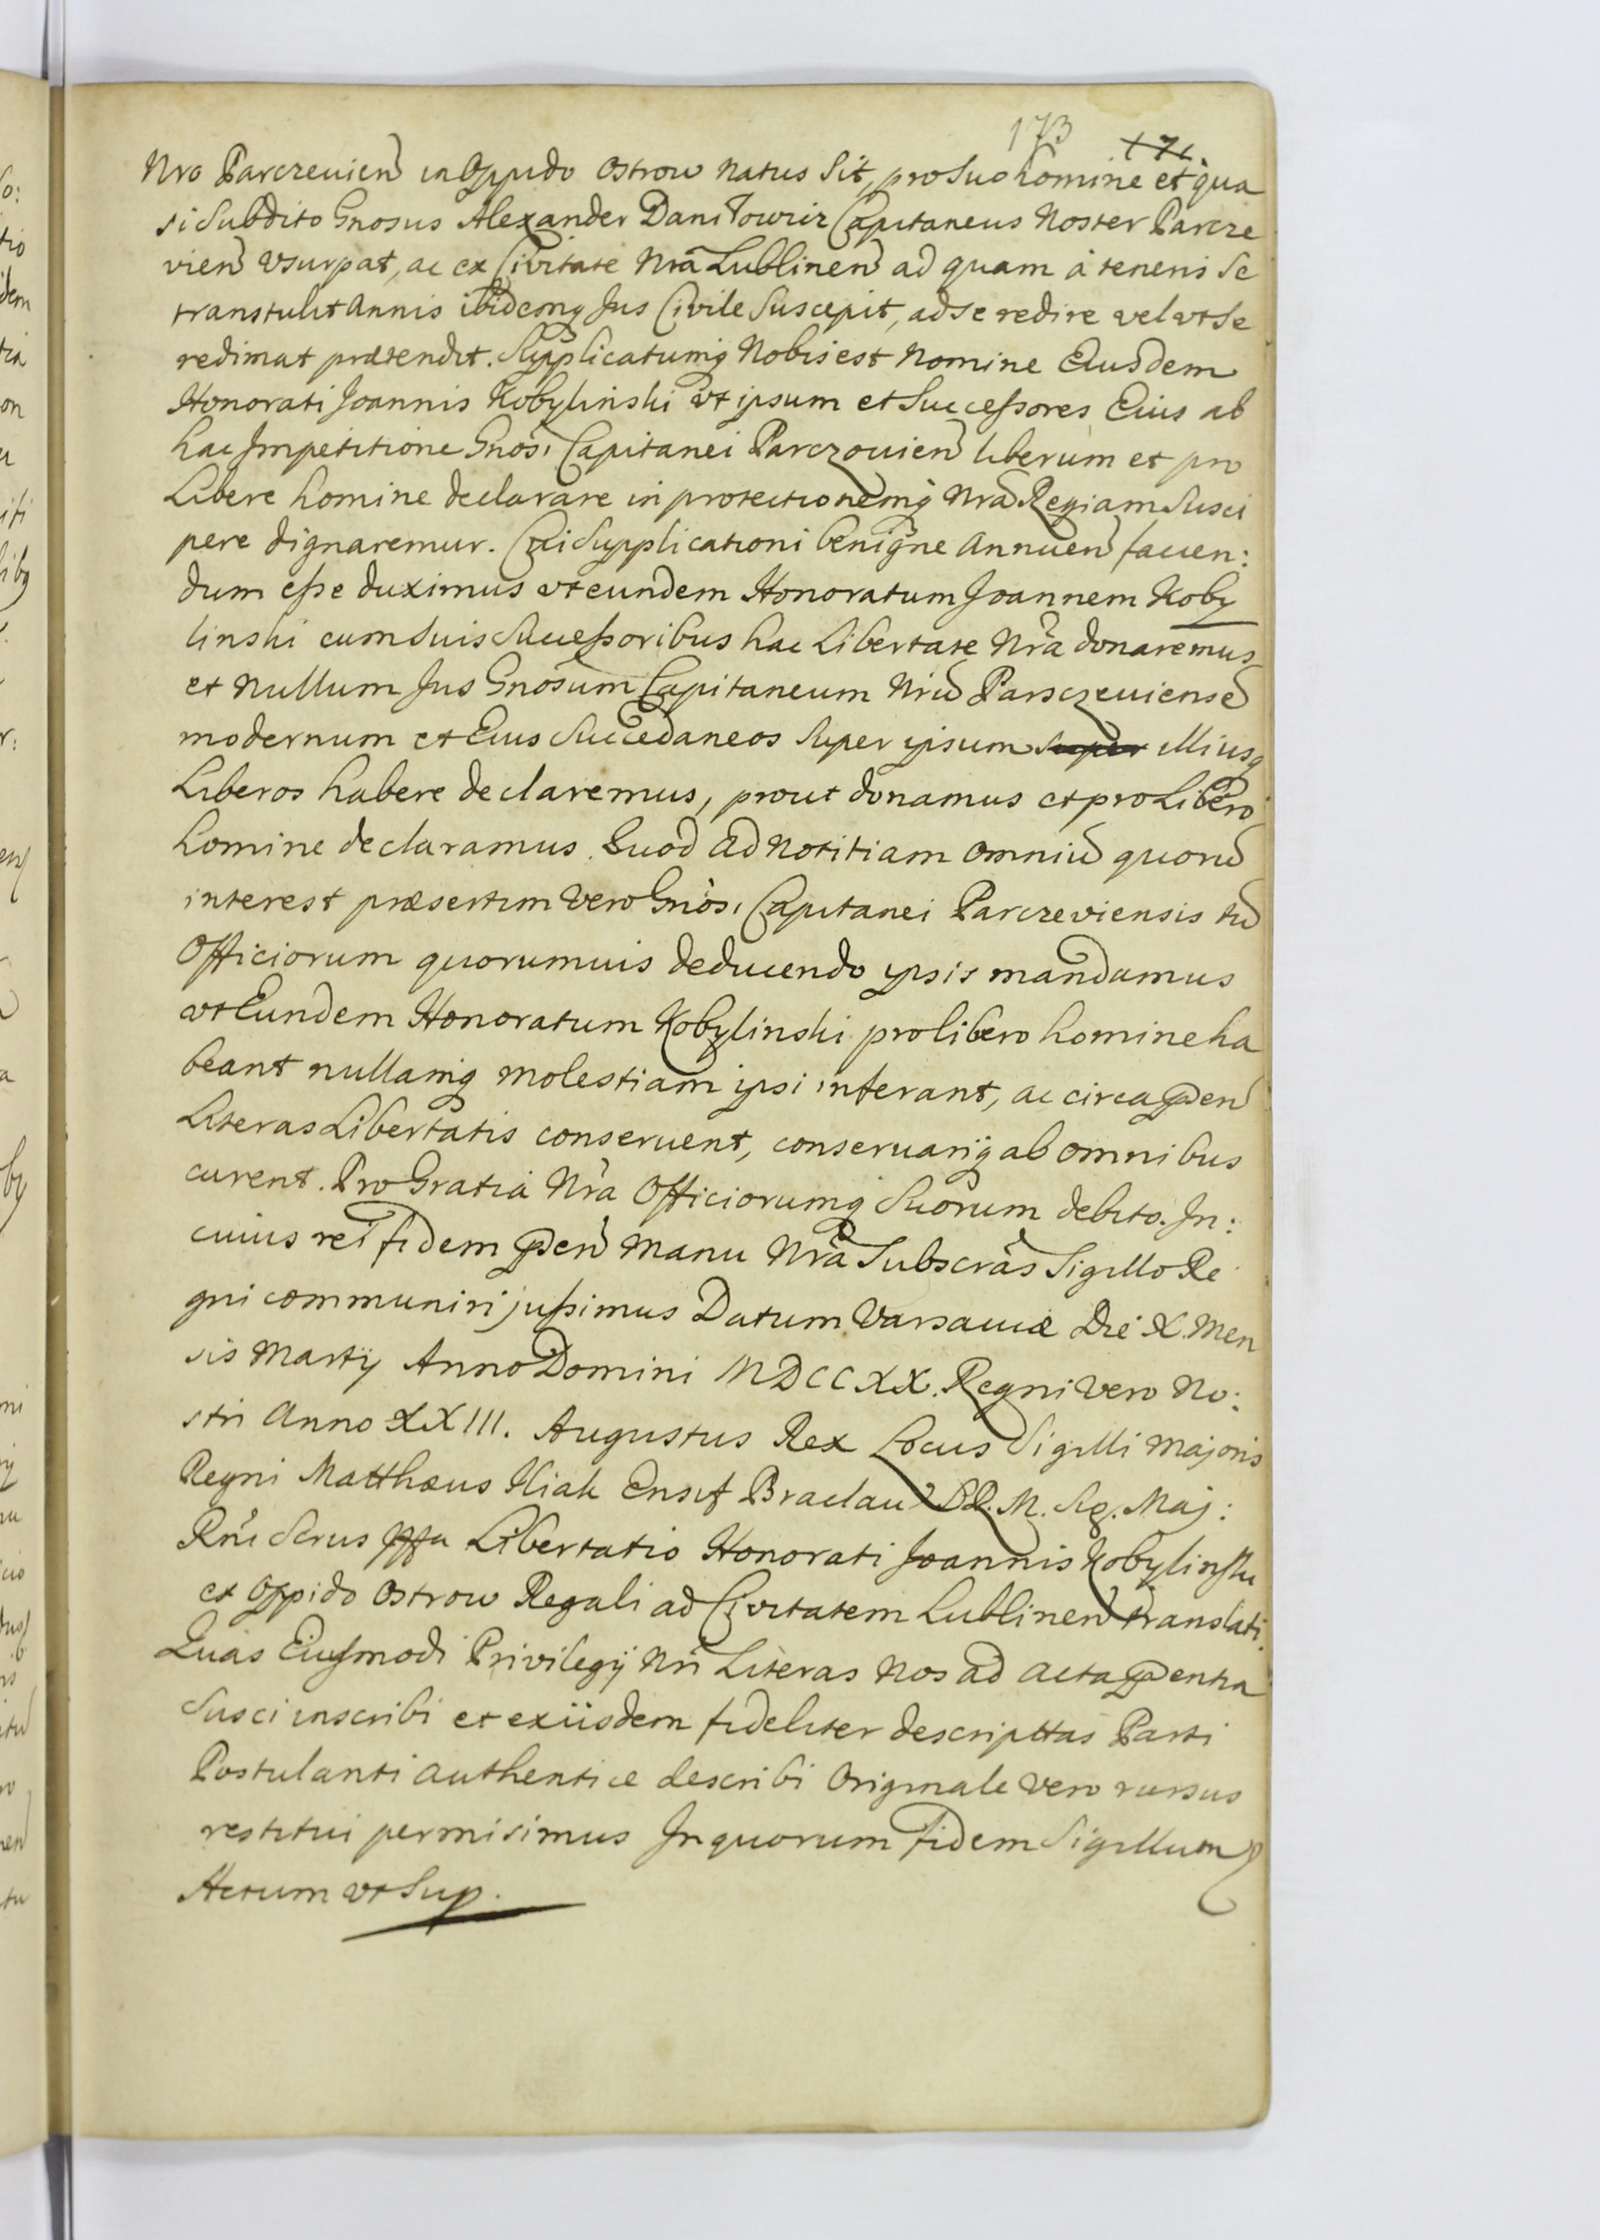 173 171.
Nro Parczevien in Oppido Ostrow natus Sit, pro Suo homine et qua
si Subdito Gnosus Alexander Daniłowicz Capitaneus Noster Parcze
vien Usurpat, ac ex Civitate Nrâ Lublinen ad quam à teneris Se
transtulit Annis ibidemq Jus Civile Suscepit, ad Se redire vel ut Se
redimat prætendit. Supplicatumq Nobis est Nomine Eiusdem
Honorati Joannis Kobylinski ut ipsum et Successores Eius ab
hac Impetitione Gnosi Capitanei Parczovien liberum et pro
Libere homine declarare in protectionemq Nrâ Regiam Susci
pere dignaremur. Cui Supplicationi benigne Annuen faven:
dum esse duximus ut eundem Honoratum Joannem Koby
linski cum Suis Successoribus hac Libertate Nra donaremus
et Nullum Jus Gnosum Capitaneum Nru Parsczeviense
modernum et Eius Succedaneos Super ipsum Super illiusq
Liberos habere declaremus, prout donamus et pro Libero
homine declaramus. Quod ad Notitiam Omniu quoru
interest præsertim Vero Gnosi Capitanei Parczeviensis tu
Officiorum quorumvis deducendo ipsis mandamus
ut Eundem Honoratum Kobylinski pro libero homine ha
beant nullamq molestiam ipsi inferant, ac circa pden
Literas Libertatis conservent, conservariq ab omnibus
curent. Pro Gratia Nra Officiorumq Suorum debito. In:
cuius rei fidem pden manu Nra Subscras Sigillo Re
gni communiri jussimus Datum Varsaviæ Die X. Men
sis Martij Anno Domini MDCCXX. Regni Vero No:
stri Anno XXIII. Augustus Rex Locus Sigilli Majoris
Regni Matthæus Iliak Ensif Braclau S.R.M. Sig. Maj:
Rni Scrus Libertatio Honorati Joannis Kobylinski
ex Oppido Ostrow Regali ad Civitatem Lublinen translati.
Quas Eiusmodi Privilegij Nri Literas Nos ad Acta pdentia
Susci inscribi et ex iisdem fideliter descripttas Parti
Postulanti authentice describi Originale Vero rursus
restitui permisimus In quorum fidem Sigillum
Actum ut Sup.